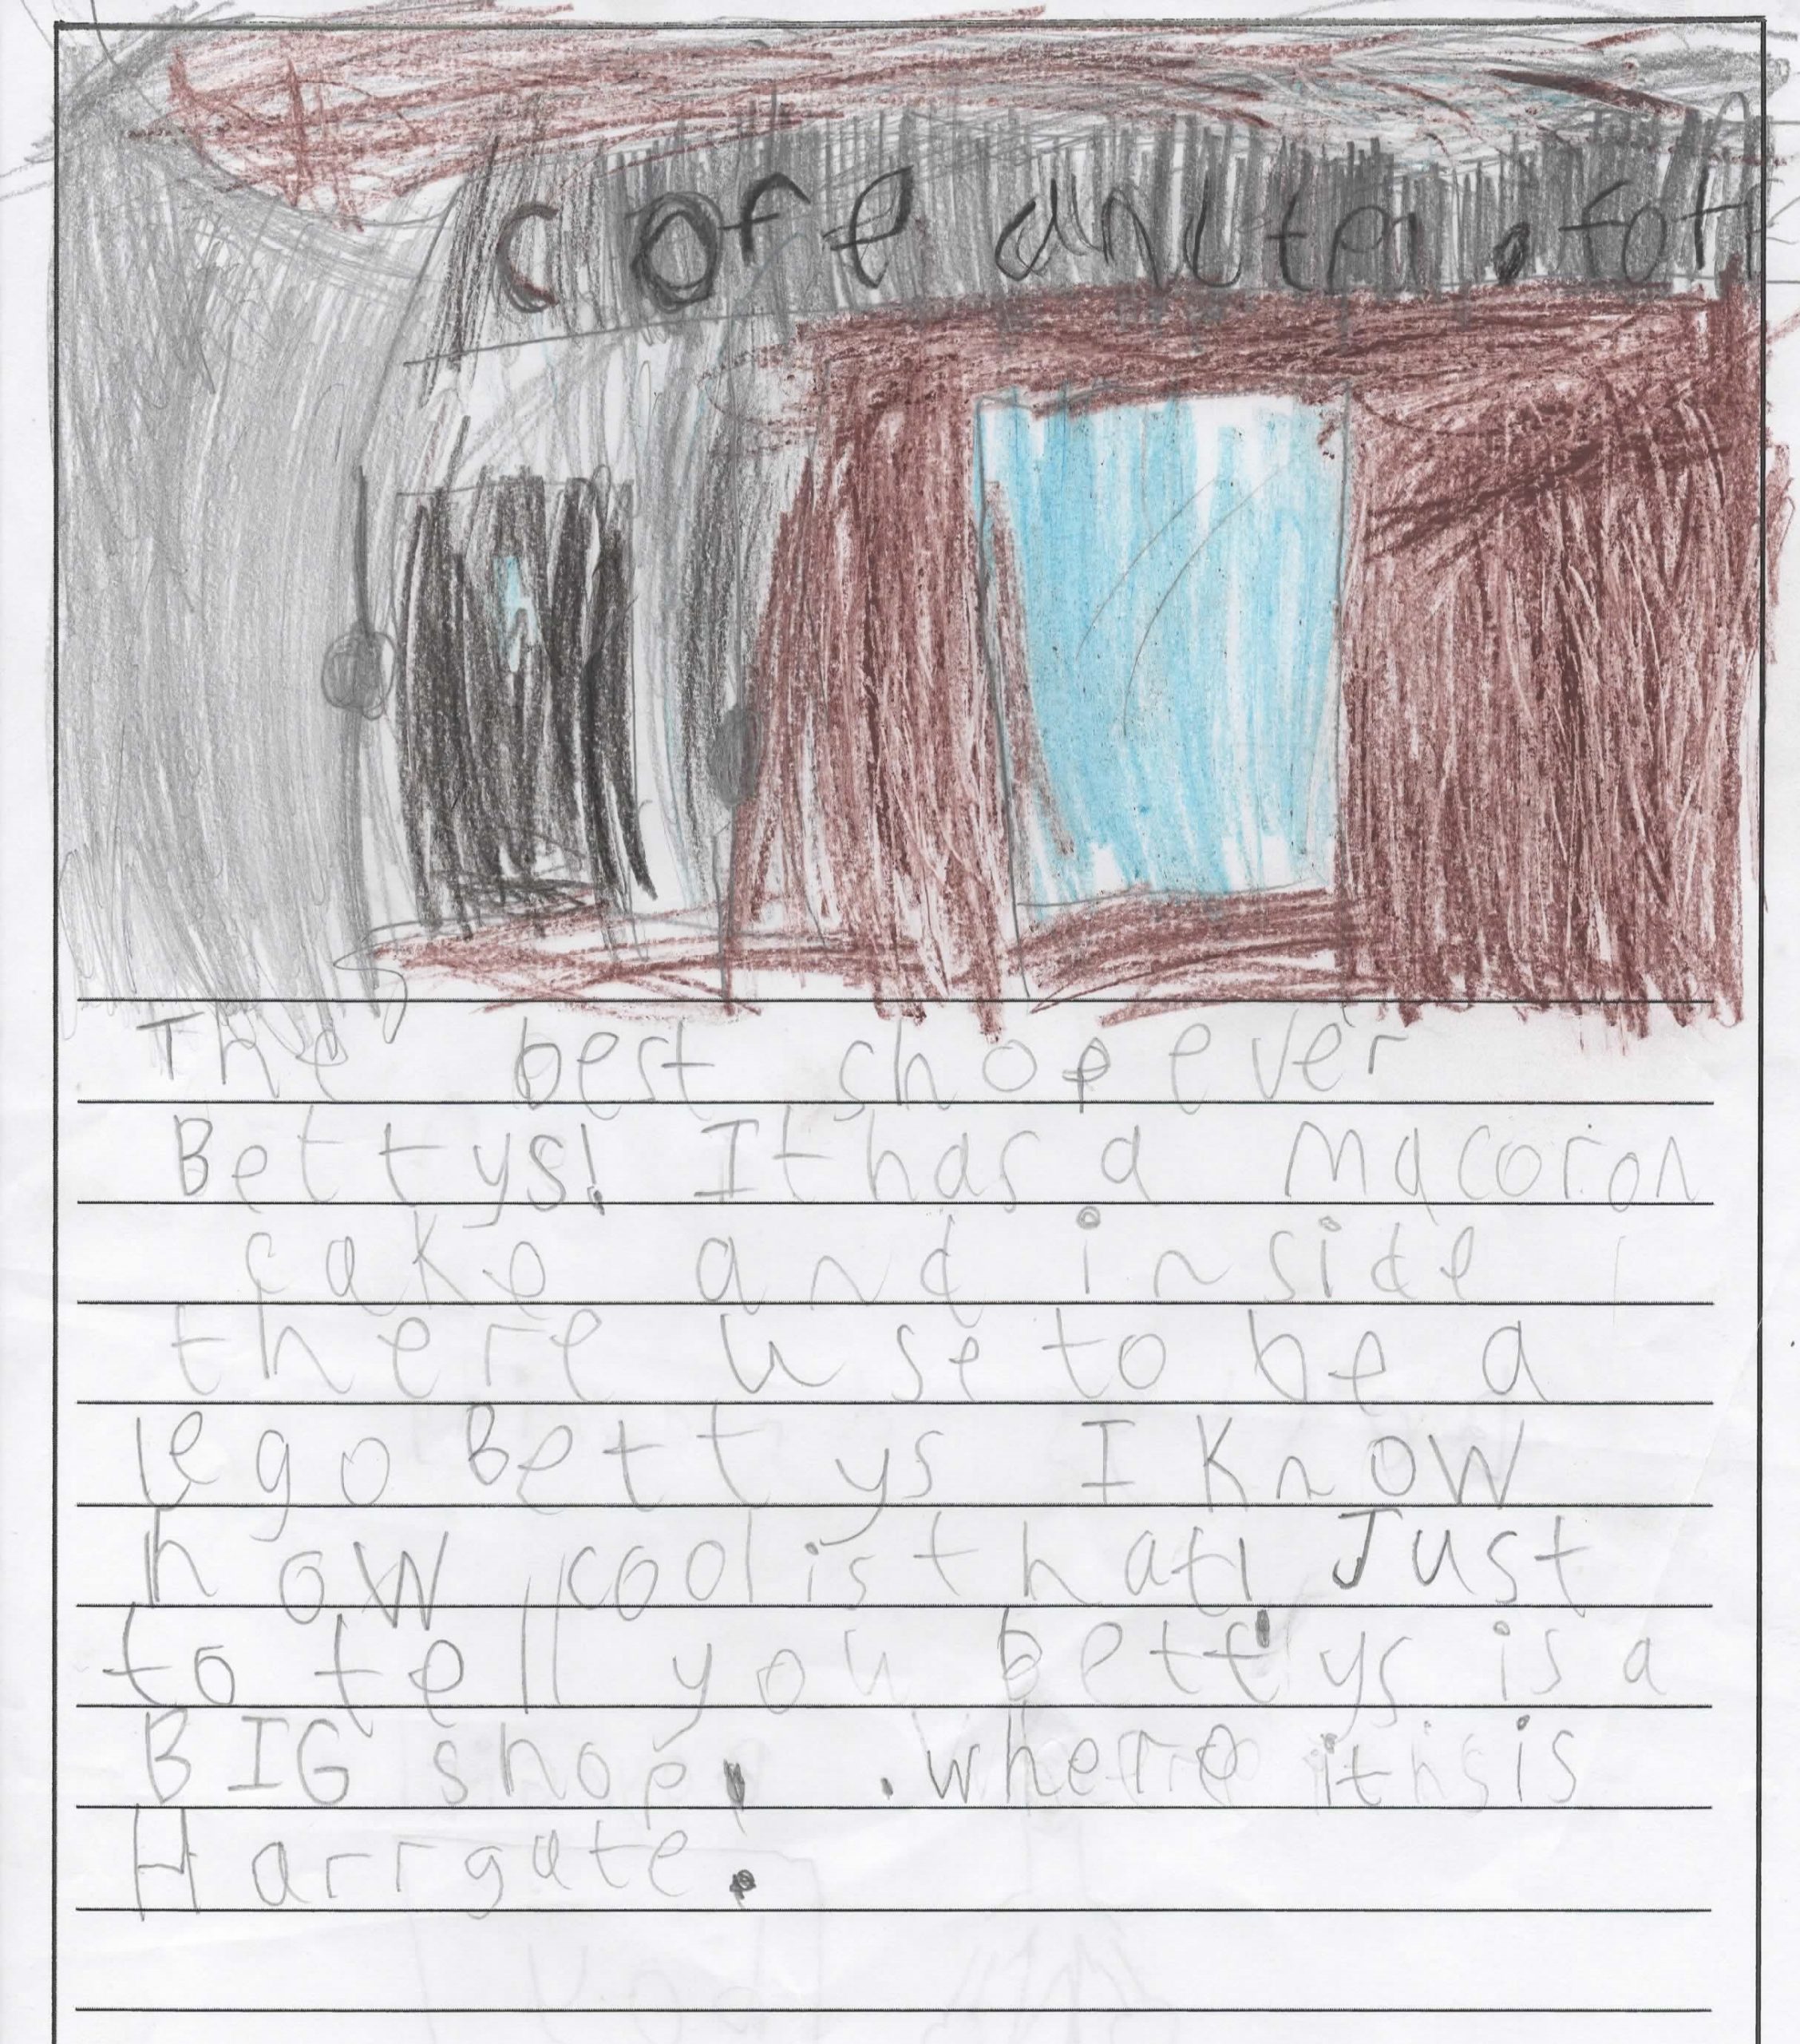 cofe
The best shop ever
Bettys! It has a macoron
cake and inside
there use to be a
lego Bettys I know
how cool is that! Just
to tell you bettys is a
BIG shop. .where it is
Harrgate.